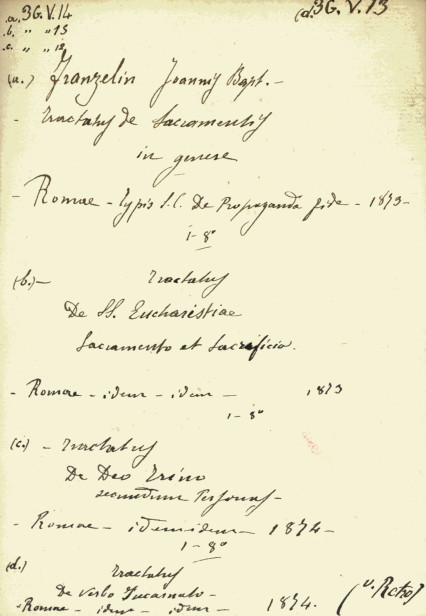 a. 3G.V.14
b. " " 15
c. " "
(d. 3G.V.13
(a.) Franzelin Joannis Bapt. -
- Tractatus de Sacramentis
in genere
- Romae - typis S.C. De Propaganda fide - 1873 -
1 - 8°
(b.) - Tractatus
De SS. Eucharistiae
Sacramento et Sacrificio.
- Romae - idem - idem - 1873
1 - 8°
(c.) - Tractatus
De Deo Trino
secundum Personas -
- Romae - idem idem - 1874 -
1 - 8°
(d.) Tractatus
De Verbo Incarnato -
- Romae - idem - idem - 1874. (v. Retro)